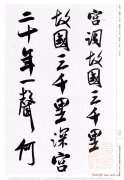 宫故國三千里
故國三千里深宫
二十年一聲何